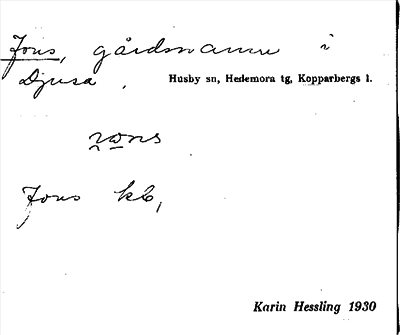 Jons, gårdsnamn i
Djusa. Husby sn, Hedemora tg, Kopparbergs l.
Jons kb,
Karin Hessling 1930